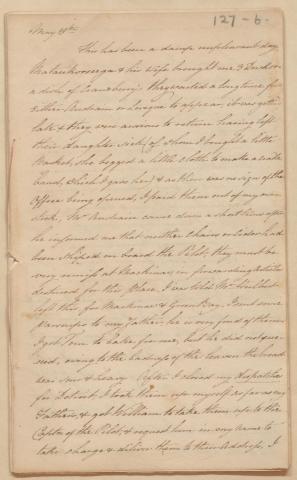 127-6.
May 18th
This has been a damp unpleasant day
& his Wife brought me 3 Ducks &
a dish of Cranberry's they waited a long time for
either Anshain or League to appear, it was getting
late & they were anxious to return having left
their daughter sick, of whom I bought a little
Basket, she begged a little cloth to make a waist
band, which I gave her & as there was no sign of the
Office being opened, I paid them out of my own
stock, Mr came down a short time after
he informed me that neither Chairs or Cider had
been Shiped on board the Pilot, they must be
very remiss at Mackinac in forwarding articles
destined for this place, I was told Mr
left this for Mackinac & Green Bay. I sent some
parsnips to my Father, he is very fond of them
I got Tom to bake for me, but he did not
owing to the badness of the leaven the bread
was sour & heavy. After I closed my dispatches
for Detroit I took them up myself as far as my
Fathers & got William to take them up to the
Captn of the Pilot, & request him in my name to
take charge & deliver them to their Address. I